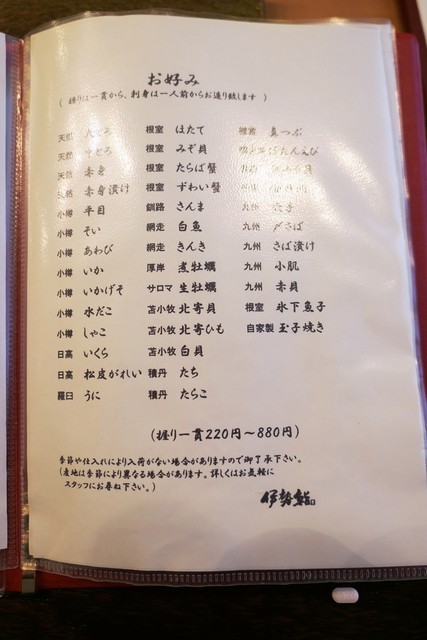 お好み
(握りは一貫から、刺身は一人前からお造り致します)
天然 大とろ
天然 中とろ
天然 赤身
天然 赤身漬け
小樽 平目
小樽 そい
小樽 あわび
小樽 いか
小樽 いかげそ
小樽 水だこ
小樽 しゃこ
日高 いくら
日高 松皮がれい
羅臼 うに
根室 ほたて
根室 みぞ貝
根室 たらば蟹
根室 ずわい蟹
釧路 さんま
網走 白魚
網走 きんき
厚岸 煮牡蠣
サロマ 生牡蠣
苫小牧 北寄貝
苫小牧 北寄ひも
苫小牧 白貝
積丹 たち
積丹 たらこ
根室 真つぶ
ぼたんえび
九州
九州
九州 穴子
九州 〆さば
九州 さば漬け
九州 小肌
九州 赤貝
根室 氷下魚子
自家製 玉子焼き
(握り一貫220円~880円)
季節や仕入れにより入荷がない場合がありますので御了承下さい。
(産地は季節により異なる場合があります。詳しくはお気軽に
スタッフにお尋ね下さい。)
伊勢鮨